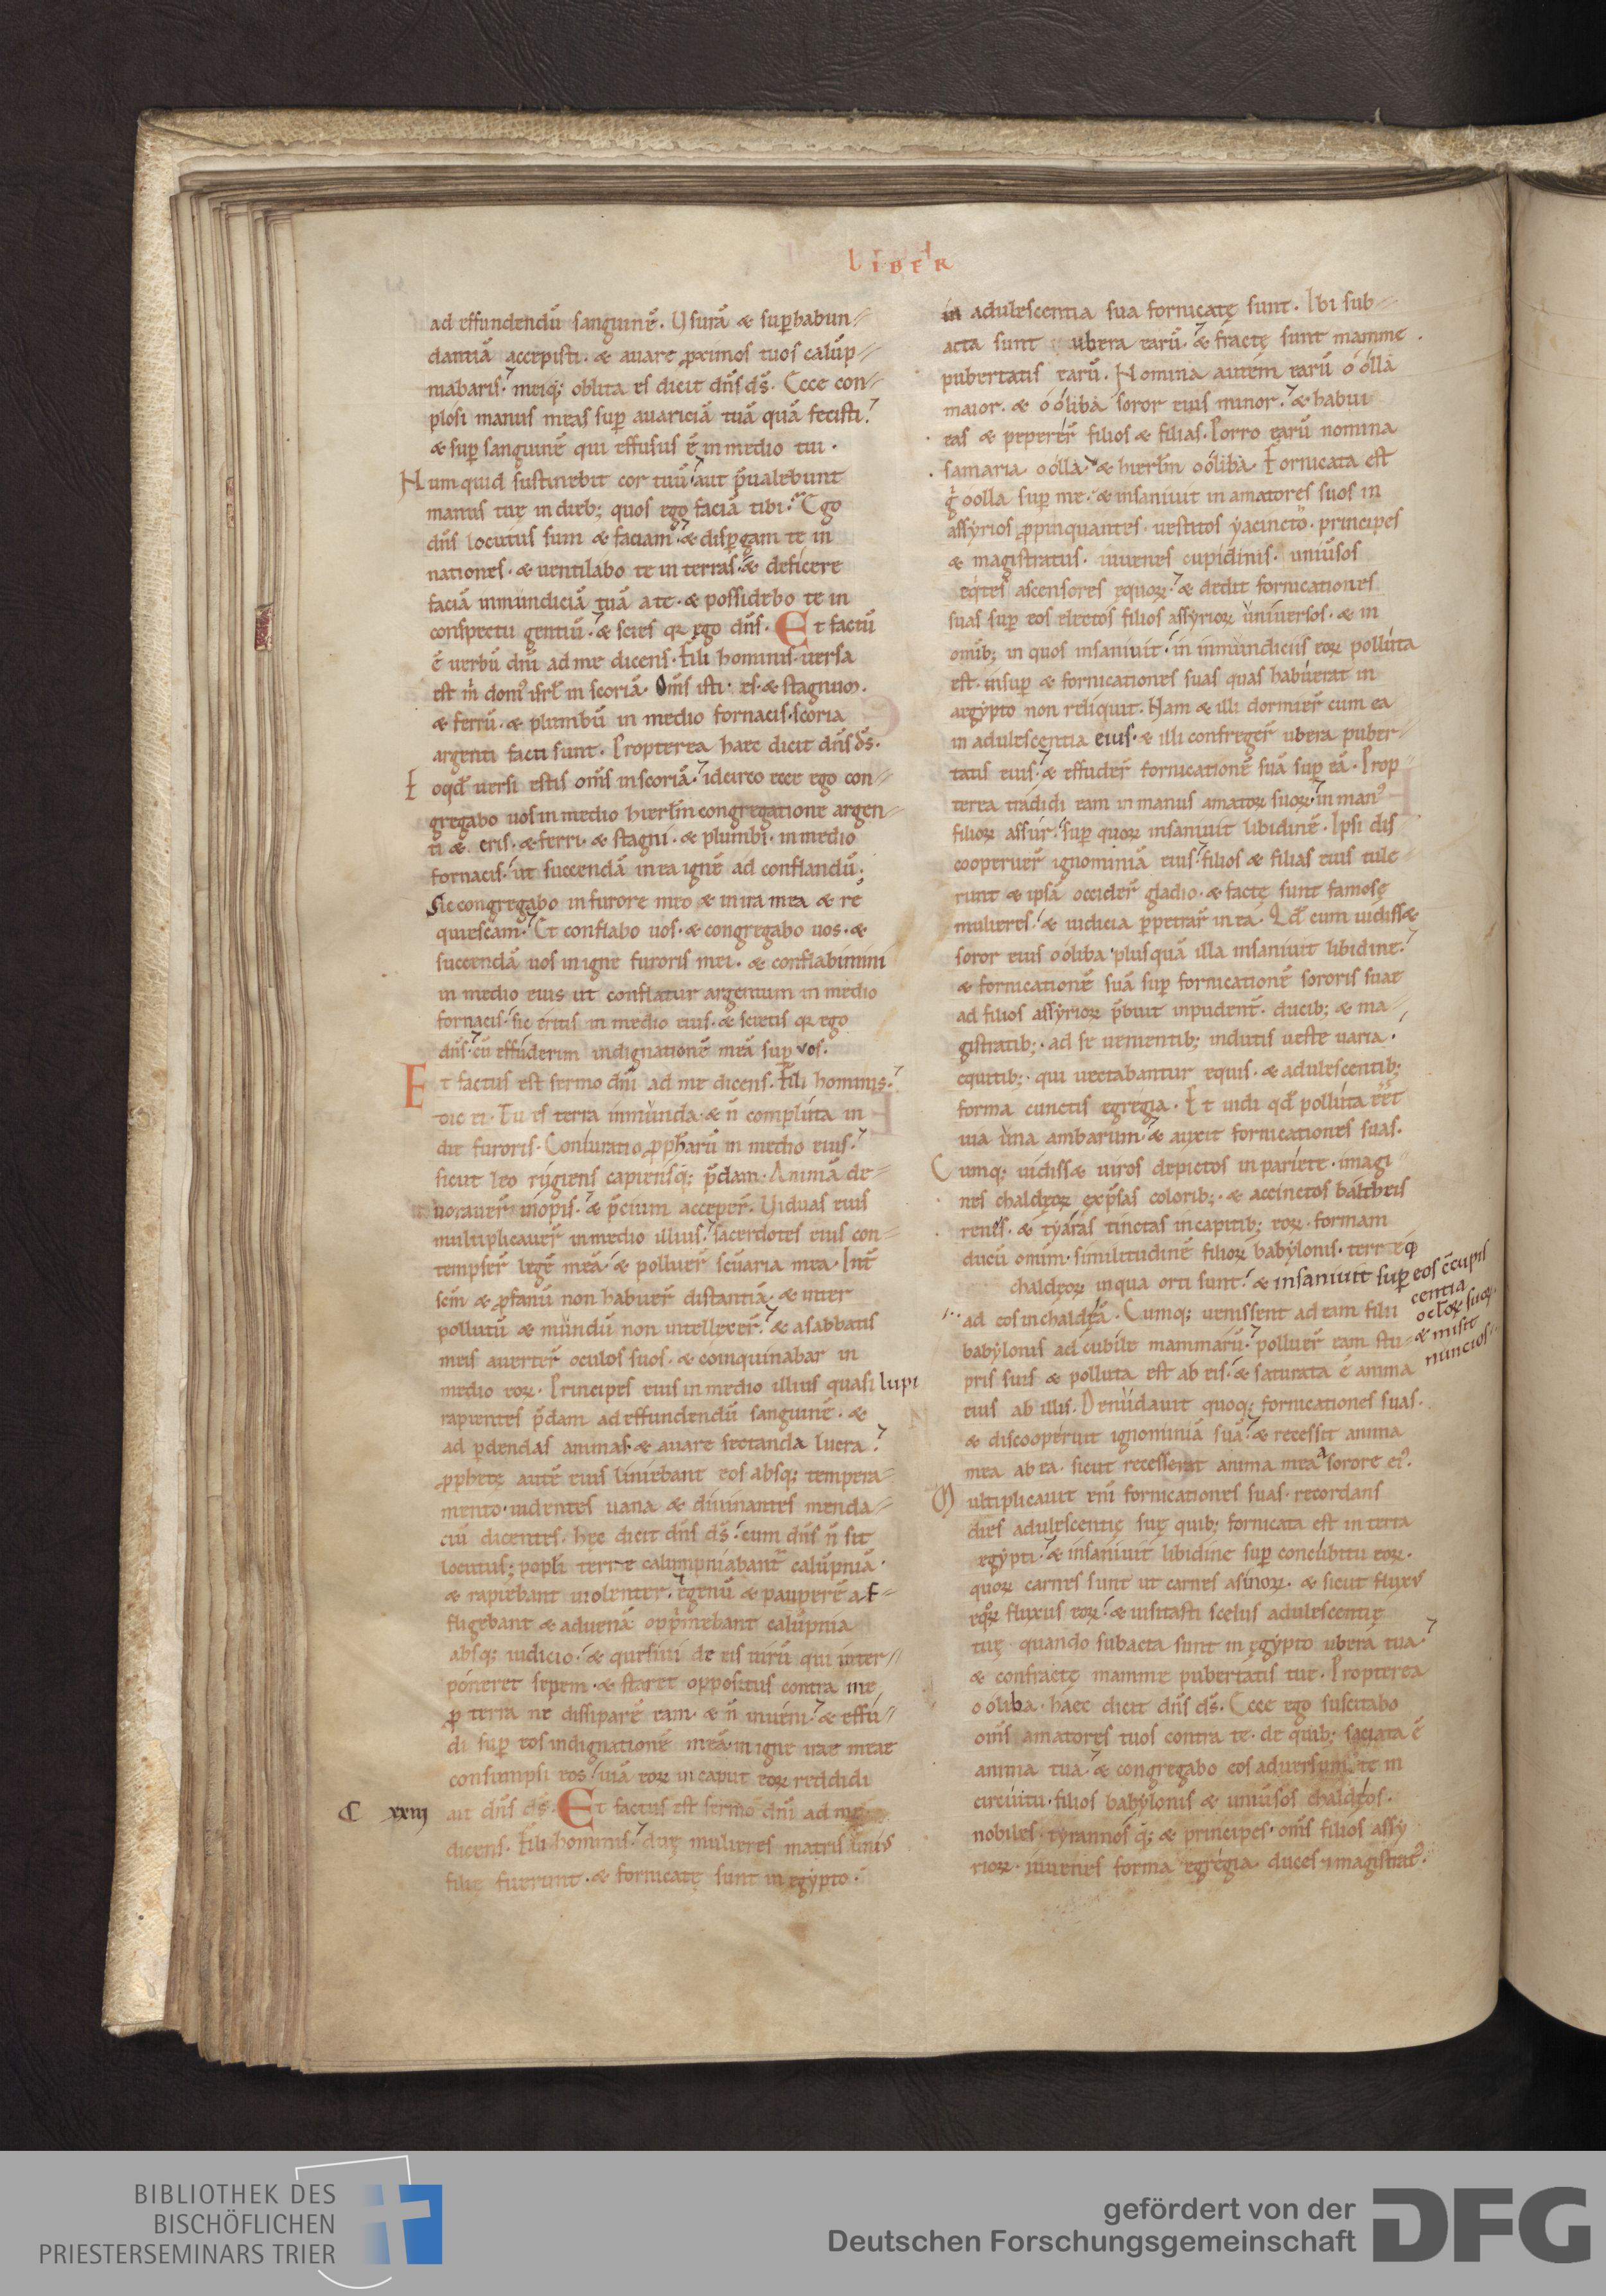 LIBER
ad effundendū sanguinē. Usurā & sup̄habun-
dantiā accepisti. & auare p̄ximos tuos calūp-
niabaris. meiq; oblita es dicit dn̄s ds̄. Ecce con-
plosi manus meas sup̄ auariciā tuā quā fecisti.
& sup̄ sanguinē qui effusus ē in medio tui.
Numquid sustinebit cor tuū. aut p̄ualebunt
manus tuę in dieb; quos ego faciā tibi. Ego
dn̄s locutus sum & faciam. & disp̄gam te in
nationes. & uentilabo te in terras. & deficere
faciā inmundiciā tuā a te. & possidebo te in
conspectu gentiū. & scies qr ego dn̄s. Et factū
ē uerbū dn̄i ad me dicens. Fili hominis. uersa
est m̄ dom' isrl̄ in scoriā. Om̄s isti. es. & stagnum.
& ferrū. & plumbū in medio fornacis. scoria
argenti facti sunt. Propterea haec dicit dn̄s ds̄.
Eoqd̄ uersi estis om̄s in scoriā. idcirco ecce ego con-
gregabo uos in medio hierlm̄ congregatione argen-
ti & eris. & ferri. & stagni. & plumbi. in medio
fornacis. ut succendā in ea ignē ad conflandū;
Sic congregabo in furore meo & in ira mea & re
quiescam. Et conflabo uos. & congregabo uos. &
succendā uos in igne furoris mei. & conflabimini
in medio eius ut conflatur argentum in medio
fornacis. sic eritis in medio eius. & scietis qr ego
dn̄s. cū effuderim indignationē meā sup̄ vos.
Et factus est sermo dn̄i ad me dicens. Fili hominis.
dic ei. Tu es terra inmunda. & n̄ compluta in
die furoris. Coniuratio p̄ph̄arū in medio eius.
sicut leo rugiens capiensq; p̄dam. Animā de-
uorauer̄ inopis. & p̄cium acceper̄. Uiduas eius
multiplicauer̄ in medio illius. sacerdotes eius con-
tempser̄ legē meā. & polluer̄ scuaria mea. Int̄
scm̄ & p̄fanū non habuer̄ distantiā. & inter
pollutū & mundū non intellexer̄. & a sabbatis
meis auerter̄ oculos suos. & coinquinabar in
medio eoꝝ. Principes eius in medio illius quasi lupi
rapientes p̄dam ad effundendū sanguinē. &
ad p̄dendas animas. & auare sectanda lucra.
p̄phetę autē eius liniebant eos absq; tempera-
mento. uidentes uana & diuinantes menda-
ciū dicentes. hęc dicit dn̄s ds̄. cum dn̄s n̄ sit
locutus; popl̄i terre calumpniabant̄ calūpniā.
& rapiebant uiolenter. egenū & pauperē af-
fligebant & aduenā opp̄mebant calūpnia
absq; iudicio. & quesiui de eis uirū qui inter-
poneret sepem. & staret oppositus contra me
p̄ terra ne dissiparē eam. & n̄ inueni. & effu-
di sup̄ eos indignationē meā. in igne irae meae
consumpsi eos. uiā eoꝝ in caput eoꝝ reddidi
C xxiij ait dn̄s ds̄. Et factus est sermo dn̄i ad me
dicens. Fili hominis. duę mulieres matris unius
filie fuerunt. & fornicatę sunt in egypto.
in adulescentia sua fornicatę sunt. Ibi sub-
acta sunt ubera earū. & fractę sunt mamme
pubertatis earū. Nomina autem earū oolla
maior. & ooliba soror eius minor. & habui
eas & peperer̄ filios & filias. Porro earū nomina
samaria oolla. & hierlm̄ ooliba. Fornicata est
g̊ oolla sup̄ me. & insaniuit in amatores suos in
assyrios p̄pinquantes. uestitos yacincto. principes
& magistratus. iuuenes cupidinis. uniūsos
eq̄tes ascensores equoꝝ. & dedit fornicationes
suas sup̄ eos electos filios assyrioꝝ uniuersos. & in
omīb; in quos insaniuit. in inmundiciis eoꝝ polluta
est. insup̄ & fornicationes suas quas habuerat in
aegypto non reliquit. Nam & illi dormier̄ cum ea
in adulescentia eius. & illi confreger̄ ubera puber-
tatis eius. & effuder̄ fornicationē suā sup̄ eā. Prop-
terea tradidi eam in manus amatoꝝ suoꝝ. in man'
filioꝝ assur. sup̄ quoꝝ insaniuit libidinē. Ipsi dis-
cooperuer̄ ignominiā eius. filios & filias eius tule-
runt & ipsā occider̄ gladio. & factę sunt famosę
mulieres. & iudicia p̄petrar̄ in ea. Qd̄ cum uidiss&
soror eius ooliba plusquā illa insaniuit libidine.
& fornicationē suā sup̄ fornicationē sororis suae
ad filios assyrioꝝ p̄buit inpudent̄. ducib; & ma-
gistratib;. ad se uenientib; indutis ueste uaria.
equitib;. qui uectabantur equis. & adulescentib;
forma cunctis egregia. Et uidi qd̄ polluta eēt
uia una ambarum. & auxit fornicationes suas.
Cumq; uidiss& uiros depictos in pariete. imagi-
nes chaldeoꝝ exp̄ssas colorib;. & accinctos baltheis
renes. & tyaras tinctas in capitib; eoꝝ. formam
ducū omiūm. similitudinē filioꝝ babylonis. terreq
chaldęoꝝ in qua orti sunt. & insaniuit sup̄ eos c̄cupis
centia
octoꝝ suoꝝ.
& misit
nuncios
ad eos in chaldęā. Cumq; uenissent ad eam filii
babylonis ad cubile mammarū. polluer̄ eam stu-
pris suis & polluta est ab eis. & saturata ē anima
eius ab illis. Denudauit quoq; fornicationes suas.
& discooperuit ignominiā suā. & recessit anima
mea ab ea. sicut recesserat anima mea a sorore ei'.
Multiplicauit eni fornicationes suas. recordans
dies adulescentię suę quib; fornicata est in terra
egypti. & insaniuit libidine sup̄ concubitu eoꝝ.
quoꝝ carnes sunt ut carnes asinoꝝ. & sicut fluxus
equoꝝ fluxus eoꝝ. & uisitasti scelus adulescentię
tuę quando subacta sunt in ęgypto ubera tua.
& confractę mamme pubertatis tue. Propterea
ooliba. haec dicit dn̄s ds̄. Ecce ego suscitabo
om̄s amatores tuos contra te. de quib; saciata ē
anima tua. & congregabo eos aduersum te in
circuitu. filios babylonis & uniūsos chaldęos.
nobiles. tyrannos q̄; & principes. om̄s filios assy
rioꝝ. iuuenes forma egregia. duces & magistrat'.
BIBLIOTHEK DES
BISCHÖFLICHEN
PRIESTERSEMINARS TRIER
gefördert von der
Deutschen Forschungsgemeinschaft
DFG